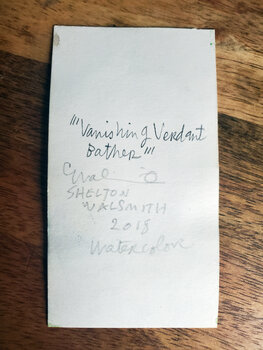 "'Vanishing Verdant
Bather'"
SHELTON
WALSMITH
2018
Watercolor